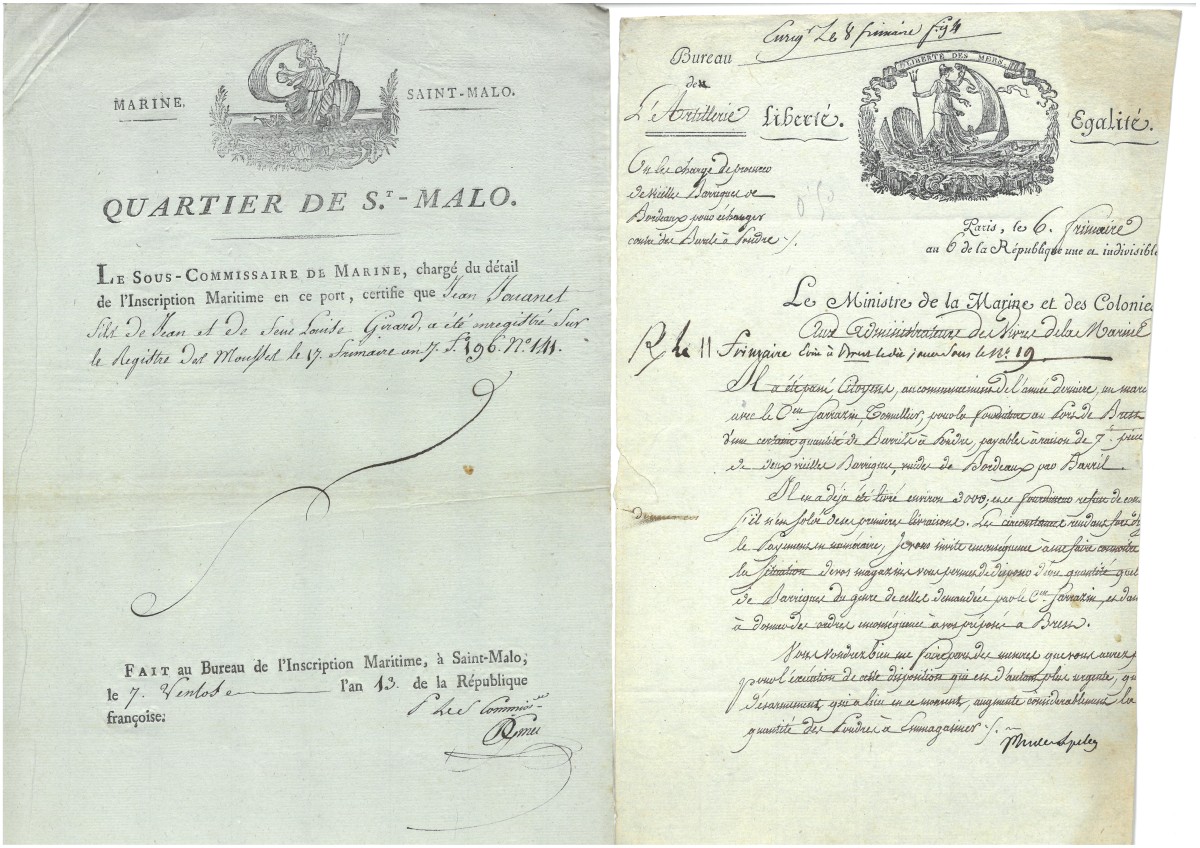 MARINE.
SAINT-MALO.
QUARTIER DE S.T-MALO.
LE SOUS-COMMISSAIRE DE MARINE, chargé du détail
de l'Inscription Maritime en ce port, certifie que Jean Jouanet
fils de Jean et de Jene Louise Girard, a été enregistré sur
le Registre des Mousses le 17. frimaire an 7. f.o 196. N.o 141.
FAIT au Bureau de l'Inscription Maritime, à Saint-Malo;
le 7. Ventose l'an 13. de la République
françoise;
P le S Commiss
Enrig le 8 frimaire f. 94
Bureau
de
L'Artillerie
Liberté.
LIBERTÉ DES MERS.
Egalité.
On les charge de
de vieilles Barriques de
Bordeaux pour échanger
contre des Barils à Poudre ./.
Paris, le 6. Frimaire
an 6 de la République une et indivisible
Le Ministre de la Marine et des Colonies
Aux Administrateurs des Vivres de la Marine
R le 11 Frimaire Ecrit à Brest le dit jour sous le N.o 19
Il a été passé Citoyens, au commencement de l'année dernière, un marc
avec le C.en Sarrazin, Tonnellier, pour la fourniture au Port de Brest
d'une certaine quantité de Barils à Poudre, payable à raison de 7.f pièce
de deux vieilles Barriques, vuides de Bordeaux par Barril.
Il en a déjà été livré environ 3000; et ce fournisseur refuse de con
s'il n'est soldé de ses premières livraisons. Les circonstances rendant fort
le Payement en numéraire, Je vous invite en conséquence à me faire connoitre
la situation de vos magazins vous permet de disposer d'une quantité quel
de Barriques du genre de celles demandées par le C.en Sarrazin, et dans
à donner des ordres en conséquence à vos préposés à Brest.
Vous voudrez bien me faire part des mesures que vous aurez
pour l'exécution de cette disposition qui est d'autant plus urgente, que
désarmement, qui a lieu en ce moment, augmente considérablement la
quantité des Poudres à Emmagasiner ./.